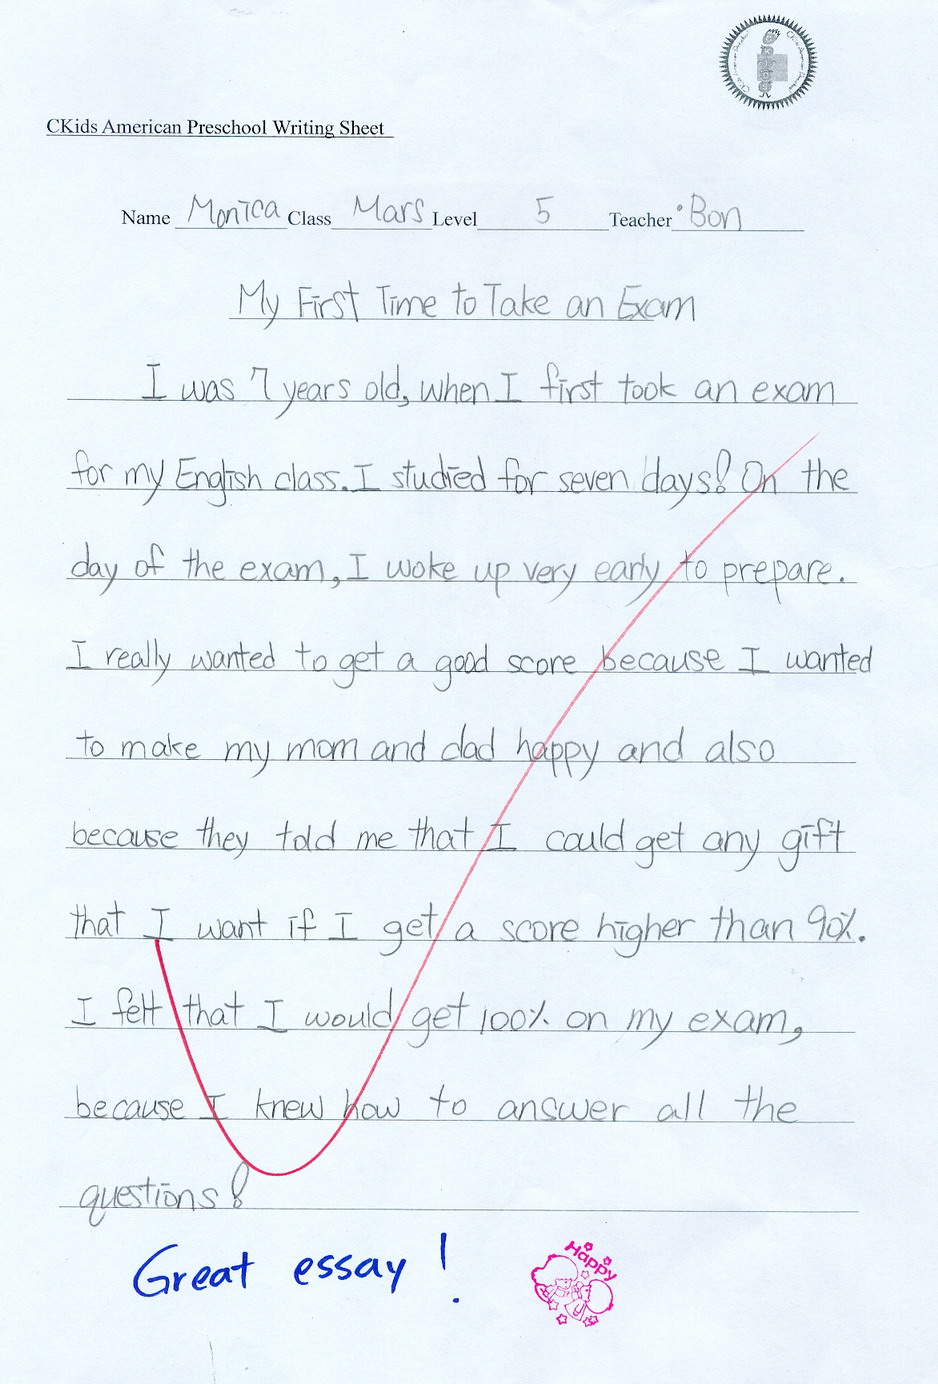 CKids American Preschool Writing Sheet
Name Monica Class Mars Level 5 Teacher Bon
My First Time to Take an Exam
I was 7 years old, when I first took an exam
for my English class. I studied for seven days! On the
day of the exam, I woke up very early to prepare.
I really wanted to get a good score because I wanted
to make my mom and dad happy and also
because they told me that I could get any gift
that I want if I get a score higher than 90%.
I felt that I would get 100% on my exam,
because I knew how to answer all the
questions!
Great essay!
Happy